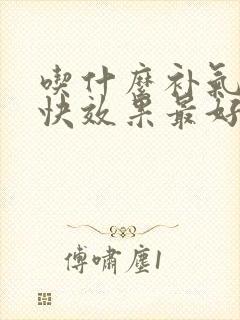 喫什麼补氣
快效果最好
傅嘯塵1